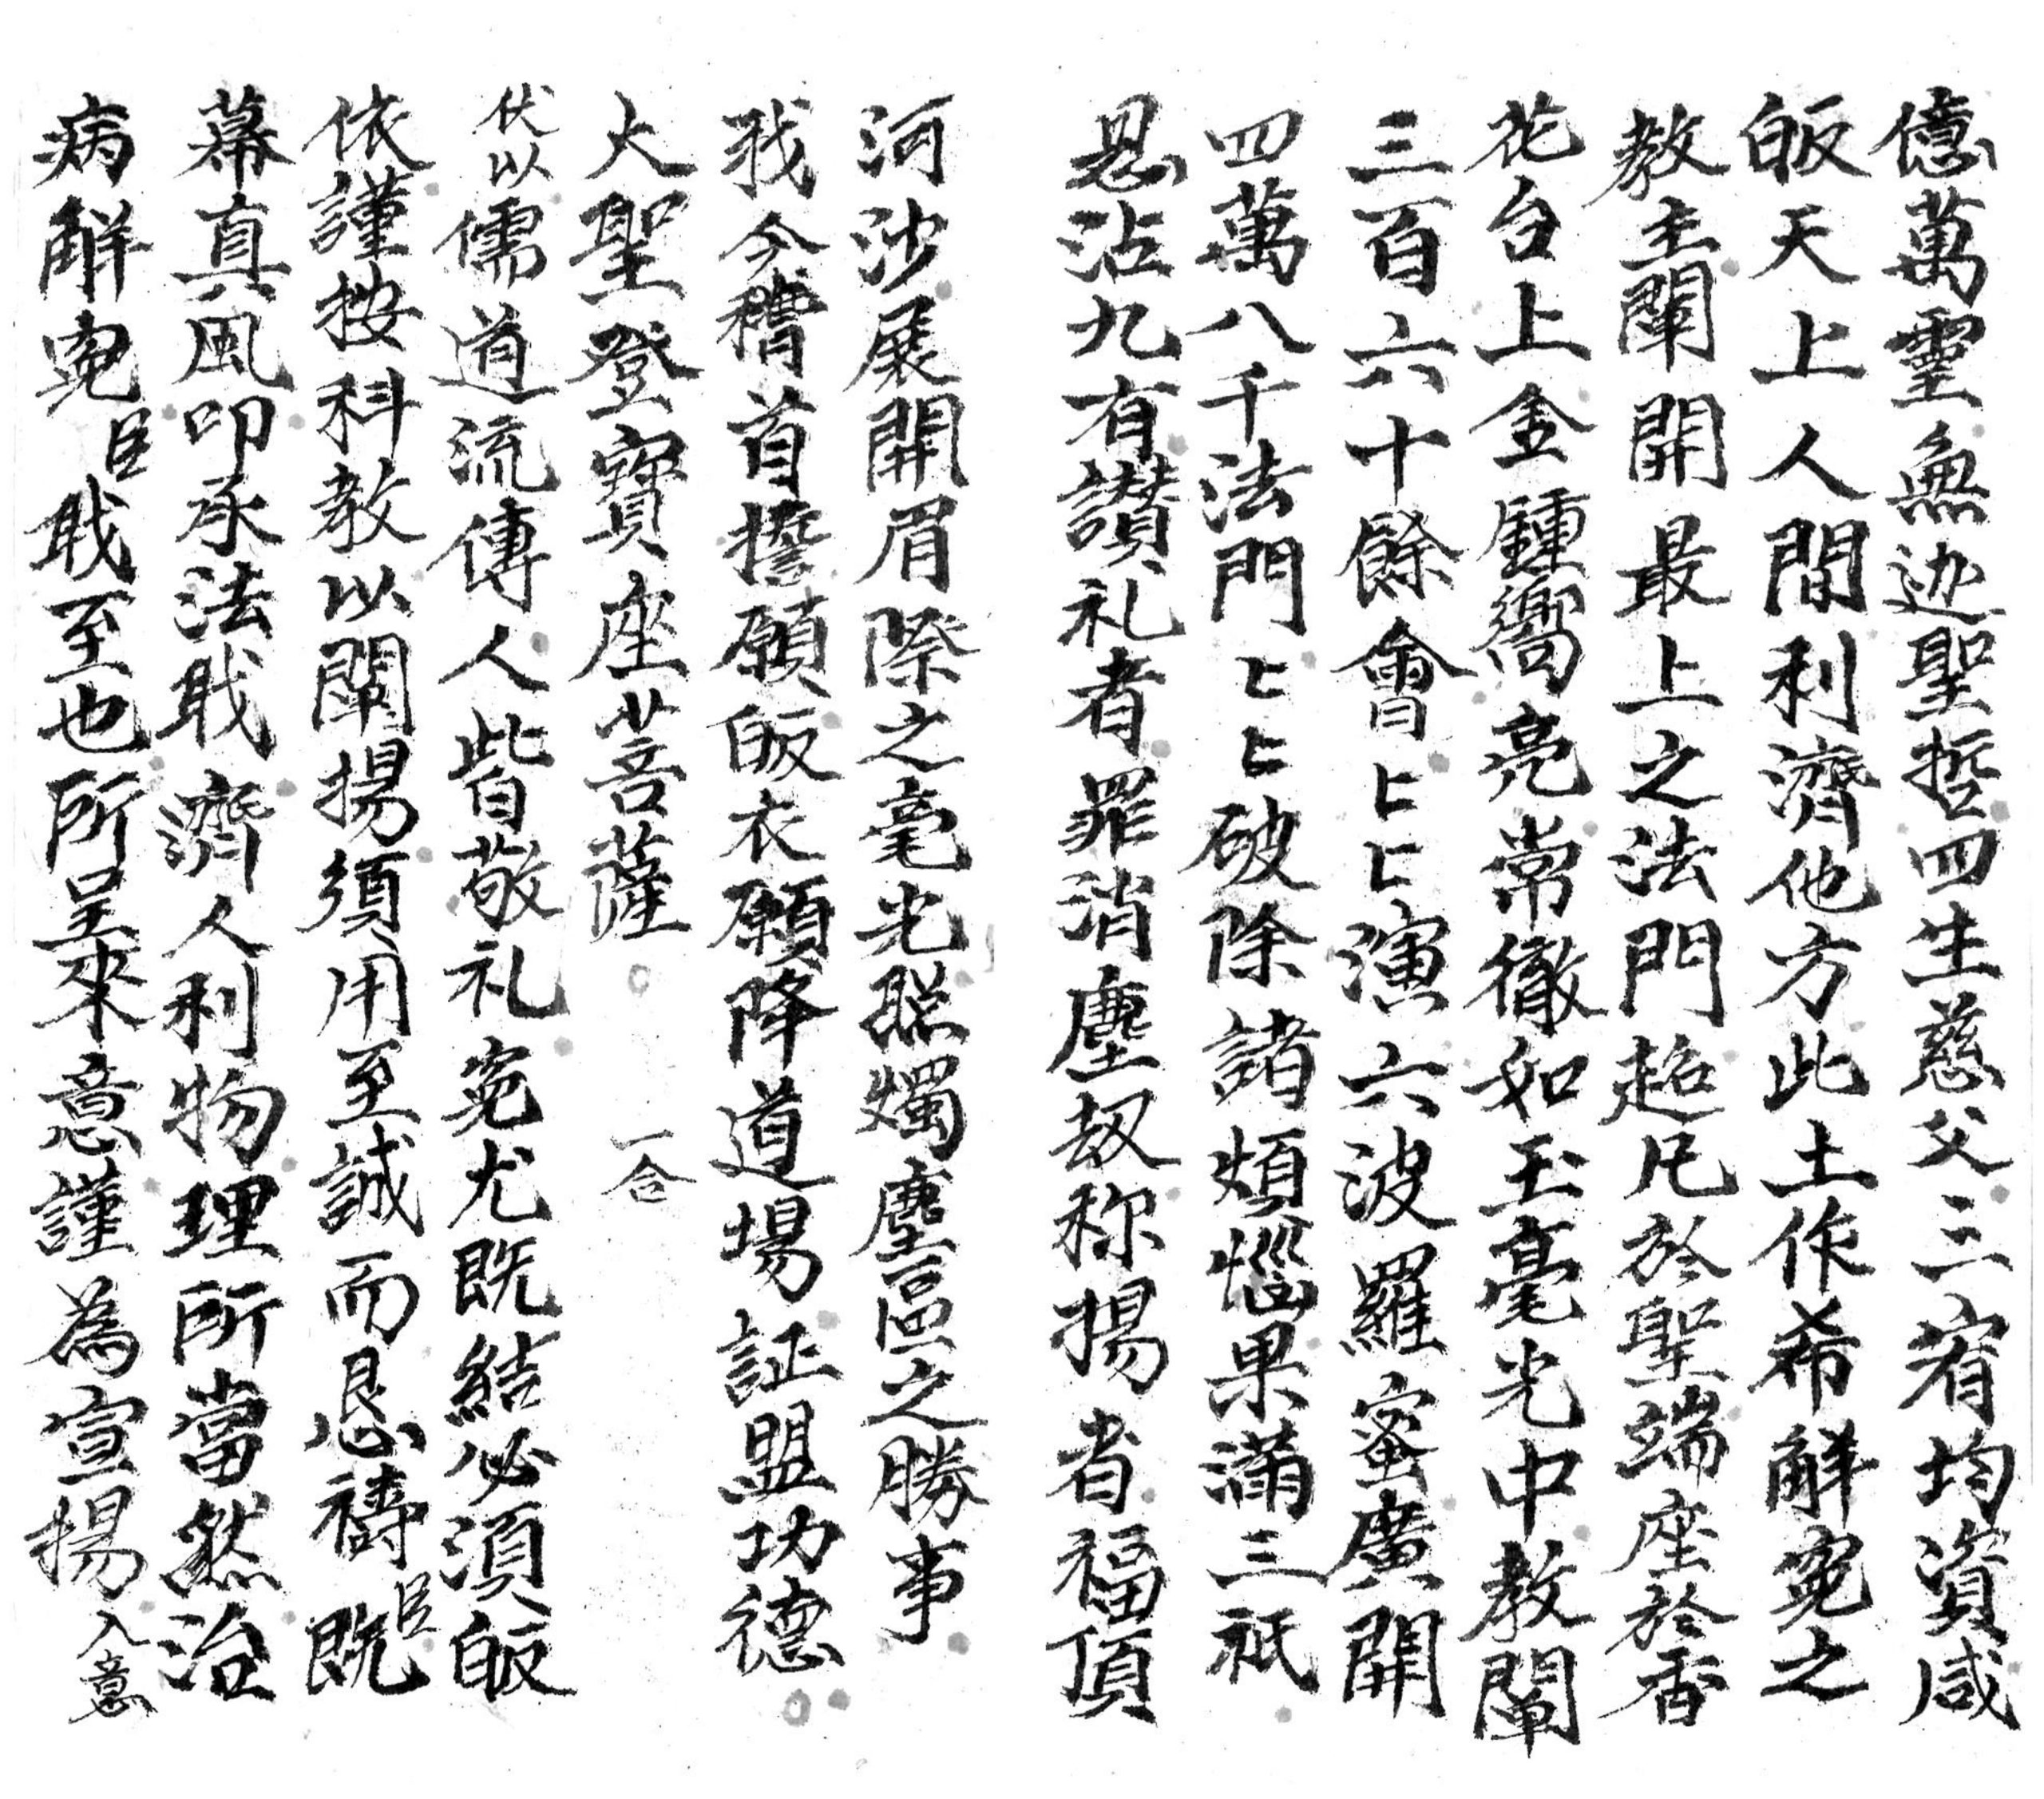 億萬靈無边聖哲四生慈父三宥均資咸
皈天上人間利濟他方此土作希解寃之
教主闡開最上之法門超凡於聖端座於香
花台上金鍾嚮亮常徹如玉毫光中教闡
三百六十餘會𠤎𠤎演六波羅蜜廣開
四萬八千法門𠤎𠤎破除諸煩惱果滿三祇
恩沾九有讃礼者罪消塵刼称揚者福頂
河沙展開眉際之毫光照燭塵區之勝事
我今稽首擔願皈衣願降道場証盟功德
大聖登寳座菩薩 一合
伏以儒道流傳人皆敬礼寃尤既結必須皈
依謹按科教以闡揚須用至誠而恳禱臣既
幕真風叩承法戝濟人利物理所當然治
病解寃臣戝至也所呈來意謹為宣揚入意